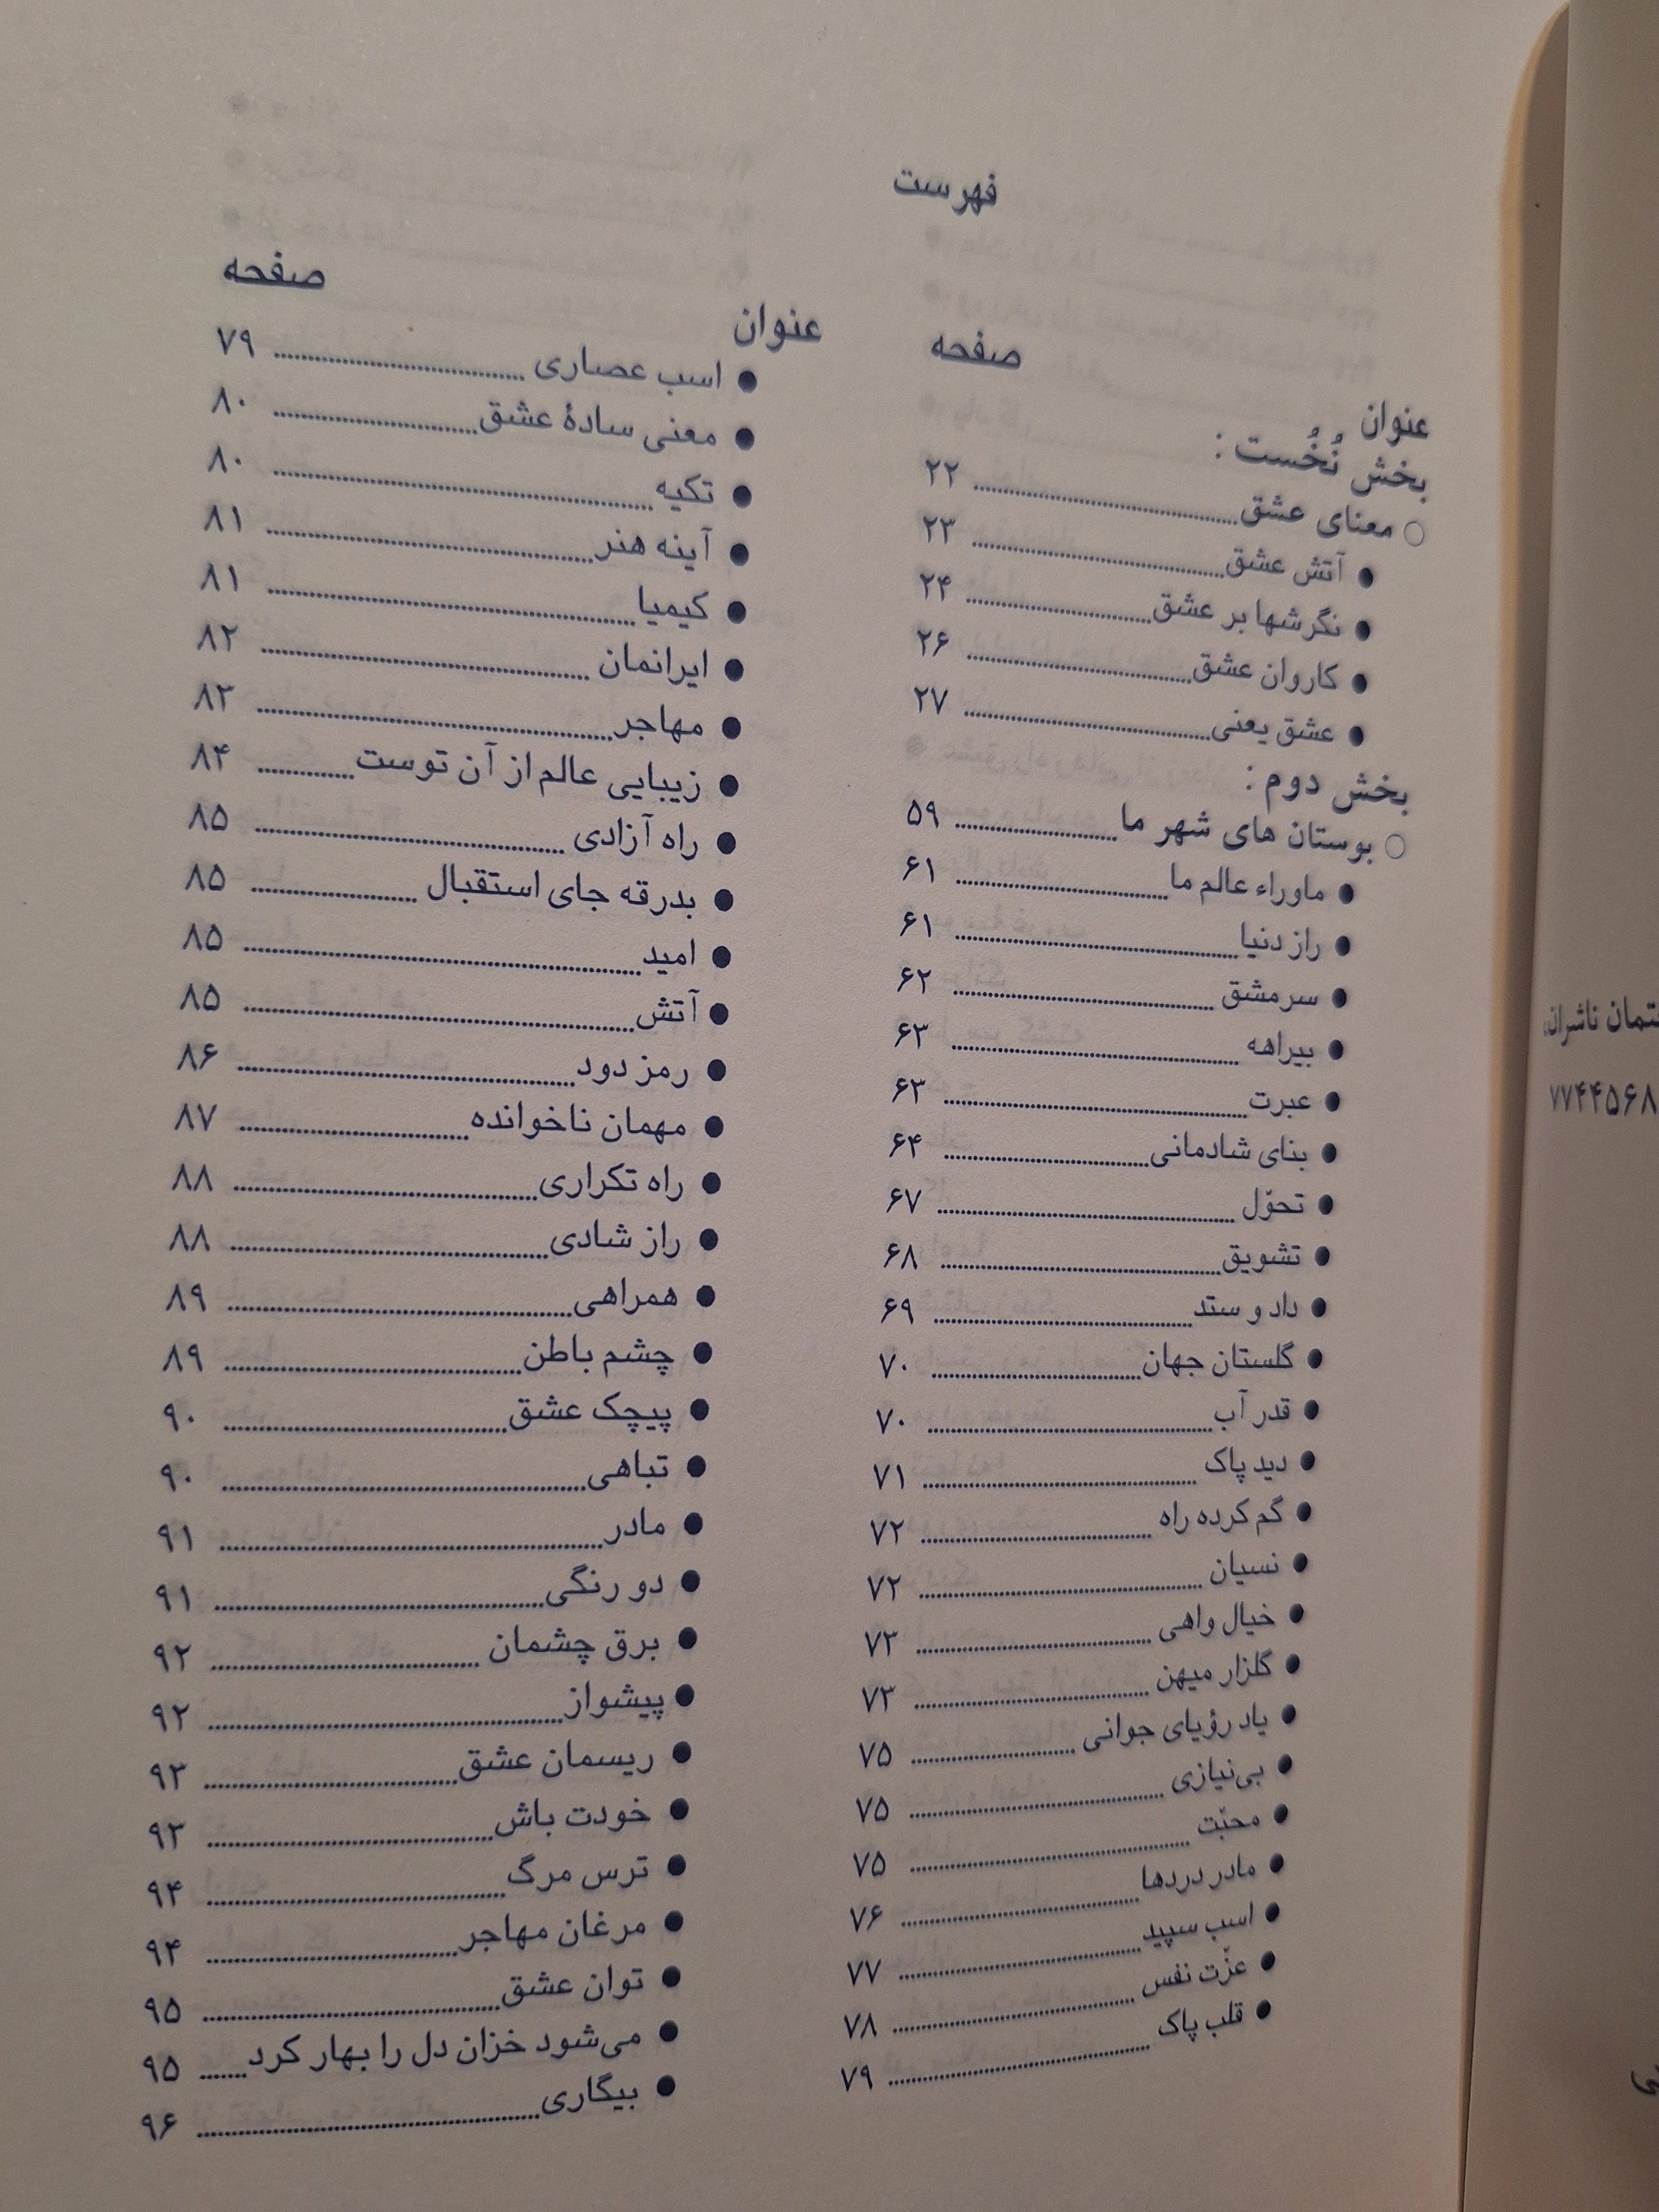 فهرست
عنوان صفحه
بخش نُخُست :
○ معنای عشق ........ ۲۲
● آتش عشق ........ ۲۳
● نگرشها بر عشق ........ ۲۴
● کاروان عشق ........ ۲۶
● عشق یعنی ........ ۲۷
بخش دوم :
○ بوستان های شهر ما ........ ۵۹
● ماوراء عالم ما ........ ۶۱
● راز دنیا ........ ۶۱
● سرمشق ........ ۶۲
● بیراهه ........ ۶۳
● عبرت ........ ۶۳
● بنای شادمانی ........ ۶۴
● تحوّل ........ ۶۷
● تشویق ........ ۶۸
● داد و ستد ........ ۶۹
● گلستان جهان ........ ۷۰
● قدر آب ........ ۷۰
● دید پاک ........ ۷۱
● گم کرده راه ........ ۷۲
● نسیان ........ ۷۲
● خیال واهی ........ ۷۳
● گلزار میهن ........ ۷۳
● یاد رؤیای جوانی ........ ۷۵
● بی‌نیازی ........ ۷۵
● محبّت ........ ۷۵
● مادر دردها ........ ۷۶
● اسب سپید ........ ۷۷
● عزّت نفس ........ ۷۸
● قلب پاک ........ ۷۹
عنوان صفحه
● اسب عصاری ........ ۷۹
● معنی سادهٔ عشق ........ ۸۰
● تکیه ........ ۸۰
● آینه هنر ........ ۸۱
● کیمیا ........ ۸۱
● ایرانمان ........ ۸۲
● مهاجر ........ ۸۳
● زیبایی عالم از آن توست ........ ۸۴
● راه آزادی ........ ۸۵
● بدرقه جای استقبال ........ ۸۵
● امید ........ ۸۵
● آتش ........ ۸۵
● رمز دود ........ ۸۶
● مهمان ناخوانده ........ ۸۷
● راه تکراری ........ ۸۸
● راز شادی ........ ۸۸
● همراهی ........ ۸۹
● چشم باطن ........ ۸۹
● پیچک عشق ........ ۹۰
● تباهی ........ ۹۰
● مادر ........ ۹۱
● دو رنگی ........ ۹۱
● برق چشمان ........ ۹۲
● پیشواز ........ ۹۲
● ریسمان عشق ........ ۹۳
● خودت باش ........ ۹۳
● ترس مرگ ........ ۹۴
● مرغان مهاجر ........ ۹۴
● توان عشق ........ ۹۵
● می‌شود خزان دل را بهار کرد ........ ۹۵
● بیگاری ........ ۹۶
ناشران،
۷۷۴۴۵۶۸